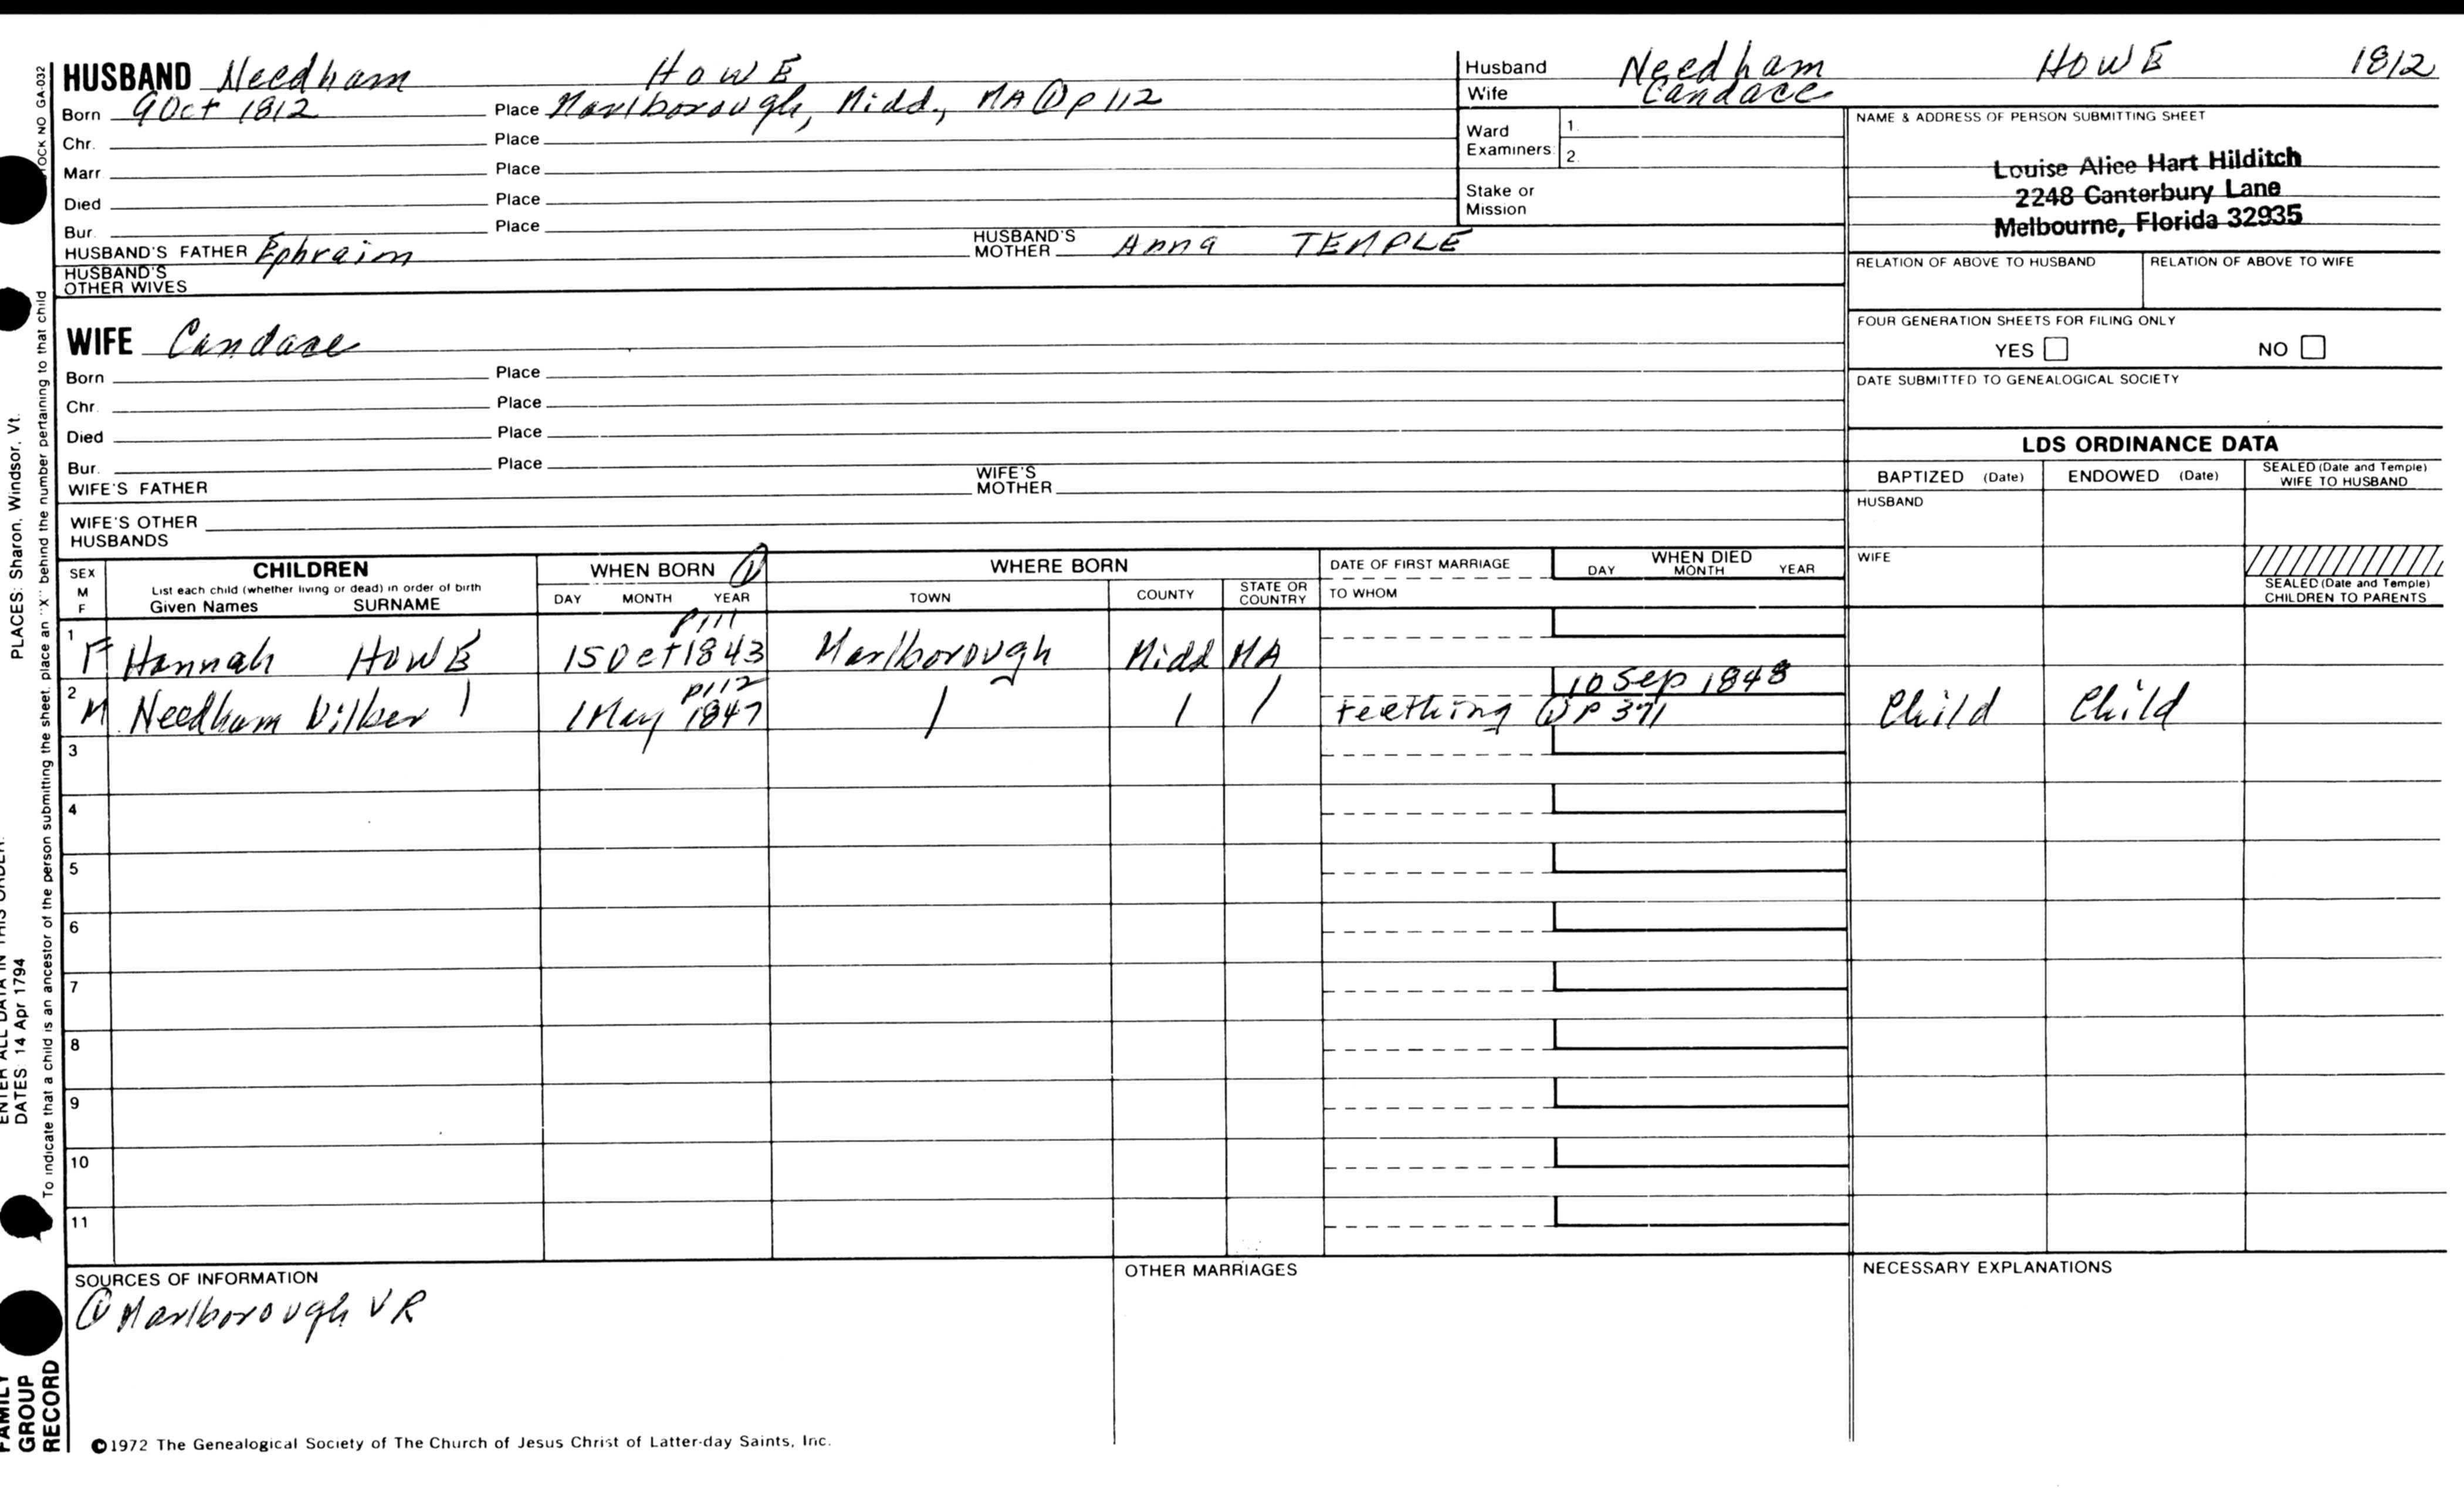 HUSBAND Needham HOWE
Born 9 Oct 1812 Place Marlborough, Midd, MA ① p 112
Chr. Place
Marr Place
Died Place
Bur. Place
HUSBAND'S FATHER Ephraim HUSBAND'S MOTHER Anna TEMPLE
HUSBAND'S OTHER WIVES
Husband Needham HOWE 1812
Wife Candace
Ward Examiners 1. 2.
Stake or Mission
NAME & ADDRESS OF PERSON SUBMITTING SHEET
Louise Alice Hart Hilditch
2248 Canterbury Lane
Melbourne, Florida 32935
RELATION OF ABOVE TO HUSBAND RELATION OF ABOVE TO WIFE
FOUR GENERATION SHEETS FOR FILING ONLY
YES NO
DATE SUBMITTED TO GENEALOGICAL SOCIETY
WIFE Candace
Born Place
Chr. Place
Died Place
Bur. Place
WIFE'S FATHER WIFE'S MOTHER
WIFE'S OTHER HUSBANDS
LDS ORDINANCE DATA
BAPTIZED (Date) ENDOWED (Date) SEALED (Date and Temple) WIFE TO HUSBAND
HUSBAND
WIFE
SEALED (Date and Temple) CHILDREN TO PARENTS
SEX M F
CHILDREN
List each child (whether living or dead) in order of birth
Given Names SURNAME
WHEN BORN ①
DAY MONTH YEAR
WHERE BORN
TOWN COUNTY STATE OR COUNTRY
DATE OF FIRST MARRIAGE
TO WHOM
WHEN DIED
DAY MONTH YEAR
p111
1 F Hannah HOWE 15 Oct 1843 Marlborough Midd MA
p112 10 Sep 1848
2 M Needham Wilber | 1 May 1847 | | | teething ① p 371 Child Child
3
4
5
6
7
8
9
10
11
SOURCES OF INFORMATION
① Marlborough VR
OTHER MARRIAGES
NECESSARY EXPLANATIONS
©1972 The Genealogical Society of The Church of Jesus Christ of Latter-day Saints, Inc.
OCK NO GA-032
To indicate that a child is an ancestor of the person submitting the sheet, place an "X" behind the number pertaining to that child
PLACES: Sharon, Windsor, Vt.
ENTER ALL DATA IN THIS ORDER:
DATES 14 Apr 1794
FAMILY GROUP RECORD